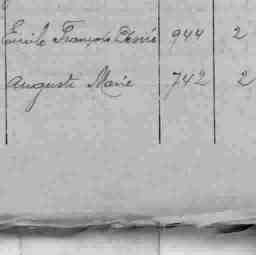 Emile François Désiré 944 2
Auguste Marie 742 2